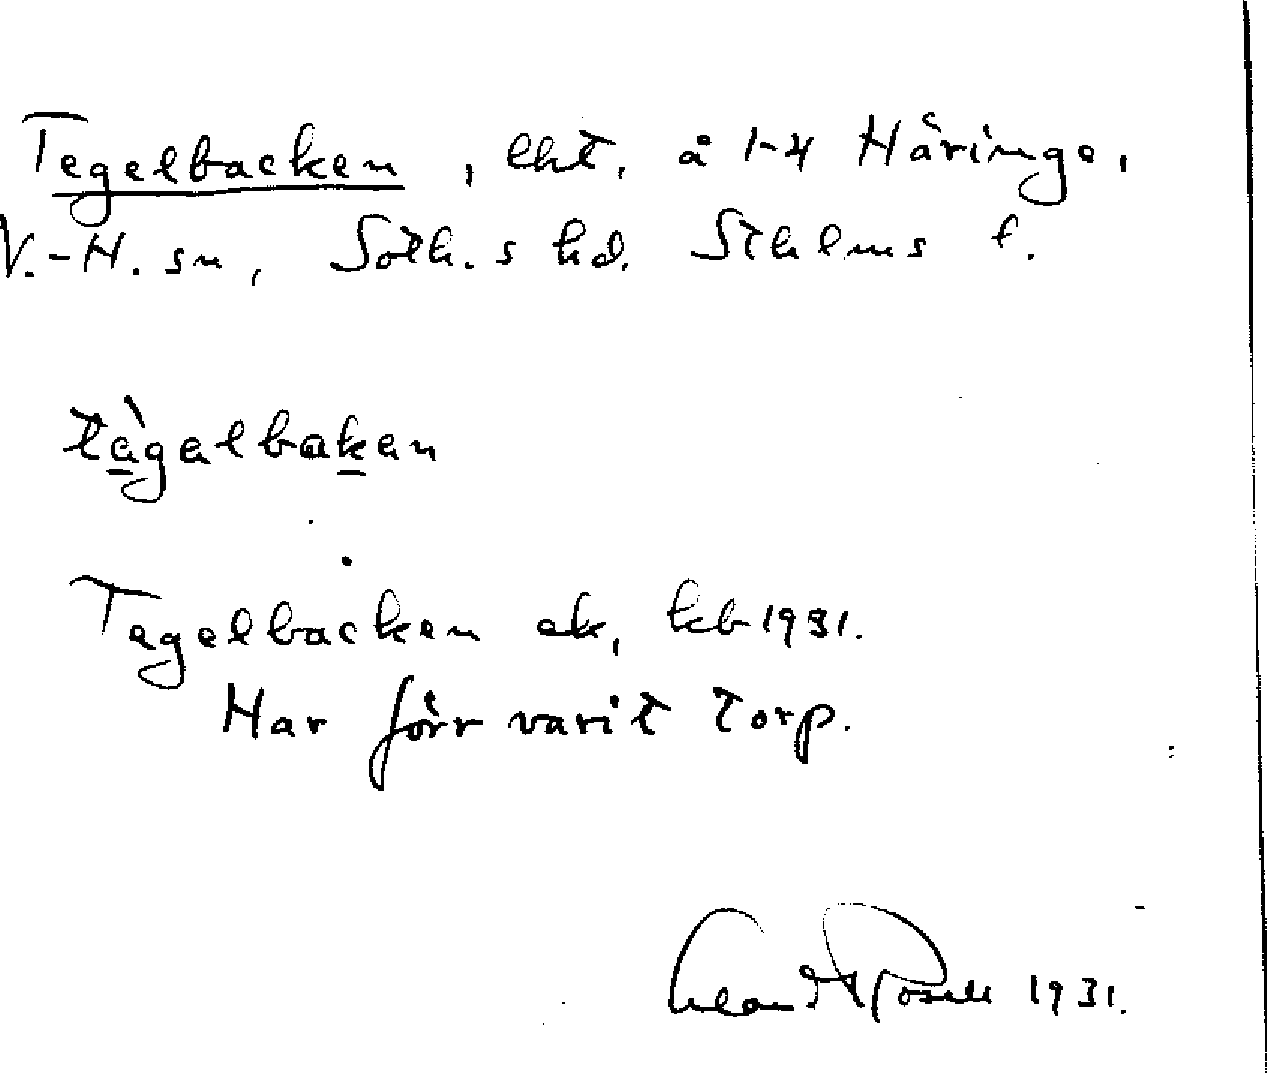 Tegelbacken, lht. å 1-4 Häringe,
V.-H. sn, Soth.s hd. Sthlms l.
tègelbaken
Tegelbacken ek, kb 1931.
Har förr varit torp.
1931.